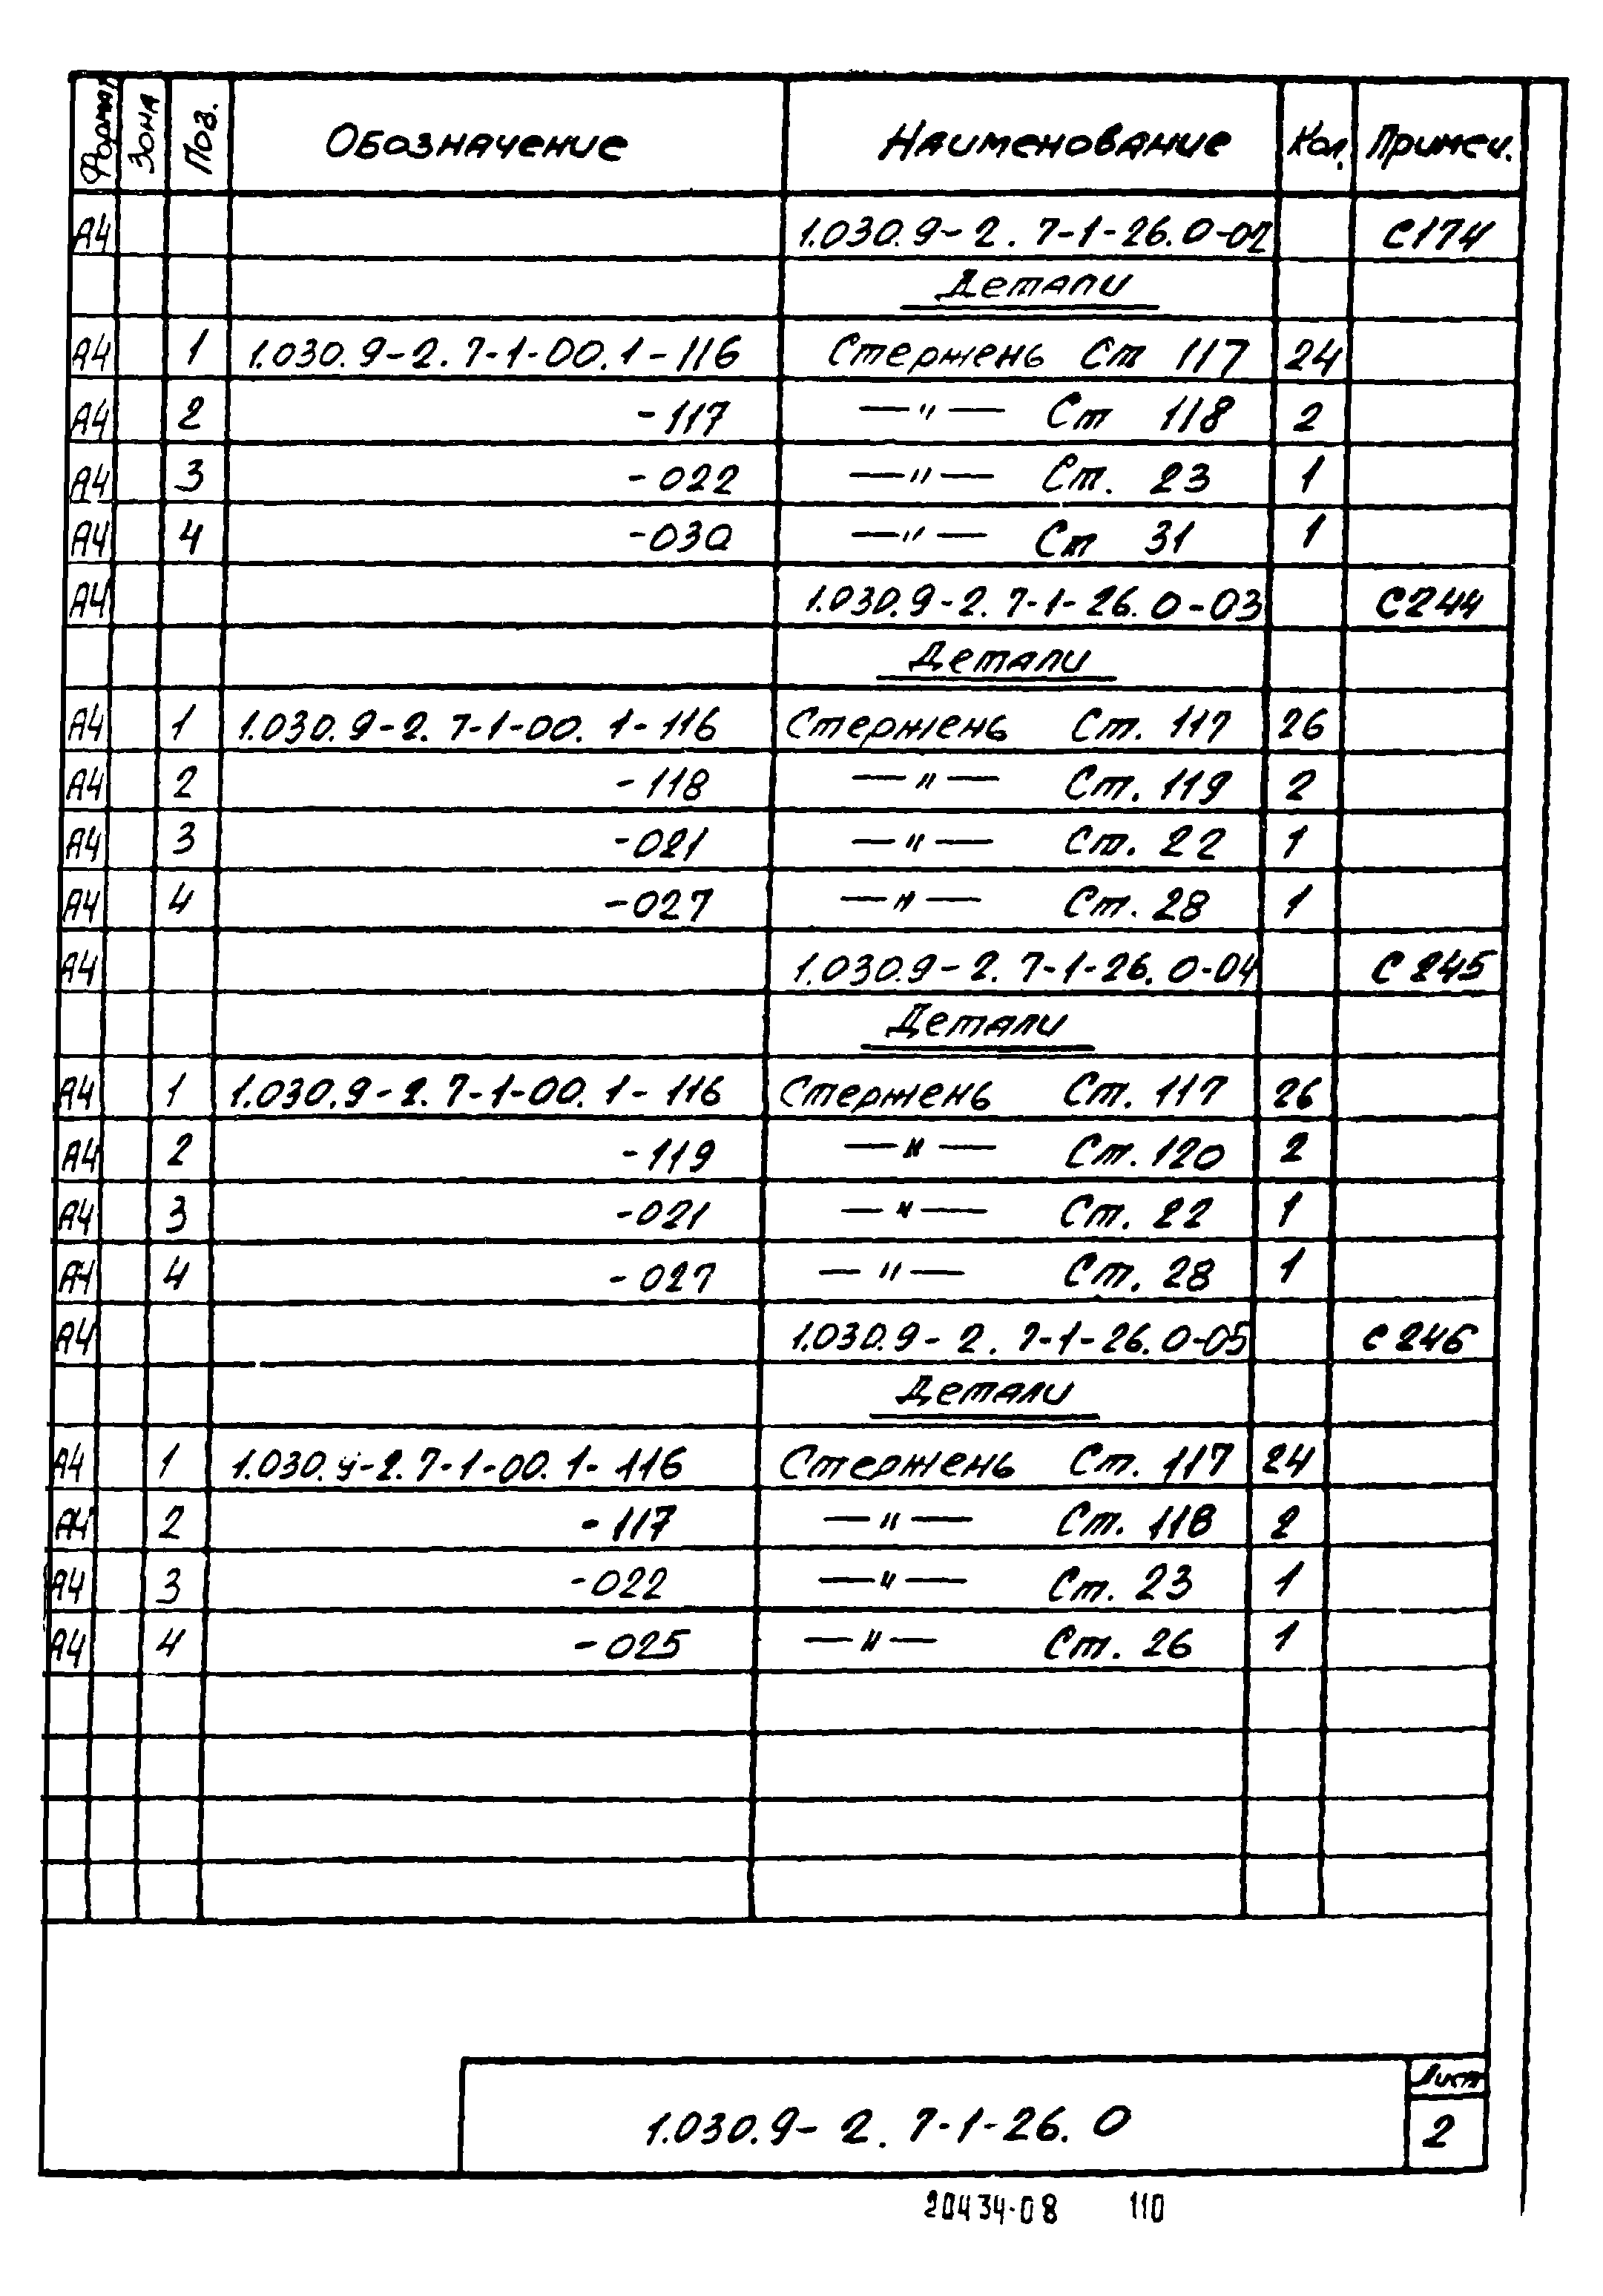 Формат Зона Поз. Обозначение Наименование Кол. Примеч.
А4 1.030.9-2.7-1-26.0-02 С174
Детали
А4 1 1.030.9-2.7-1-00.1-116 Стержень Ст 117 24
А4 2 -117 —〃— Ст 118 2
А4 3 -022 —〃— Ст. 23 1
А4 4 -030 —〃— Ст 31 1
А4 1.030.9-2.7-1-26.0-03 С244
Детали
А4 1 1.030.9-2.7-1-00.1-116 Стержень Ст. 117 26
А4 2 -118 —〃— Ст. 119 2
А4 3 -021 —〃— Ст. 22 1
А4 4 -027 —〃— Ст. 28 1
А4 1.030.9-2.7-1-26.0-04 С 245
Детали
А4 1 1.030.9-2.7-1-00.1-116 Стержень Ст. 117 26
А4 2 -119 —〃— Ст. 120 2
А4 3 -021 —〃— Ст. 22 1
А4 4 -027 —〃— Ст. 28 1
А4 1.030.9-2.7-1-26.0-05 С 246
Детали
А4 1 1.030.9-2.7-1-00.1-116 Стержень Ст. 117 24
А4 2 -117 —〃— Ст. 118 2
А4 3 -022 —〃— Ст. 23 1
А4 4 -025 —〃— Ст. 26 1
Лист
1.030.9-2.7-1-26.0 2
20434-08 110